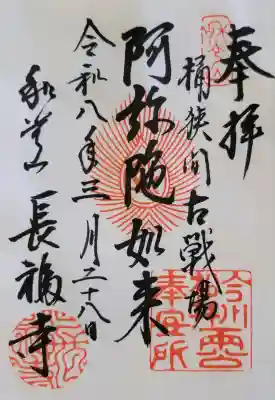 奉拝
桶狭間古戦場
阿弥陀如来
令和八年三月二十八日
和光山
長福寺
奉安所